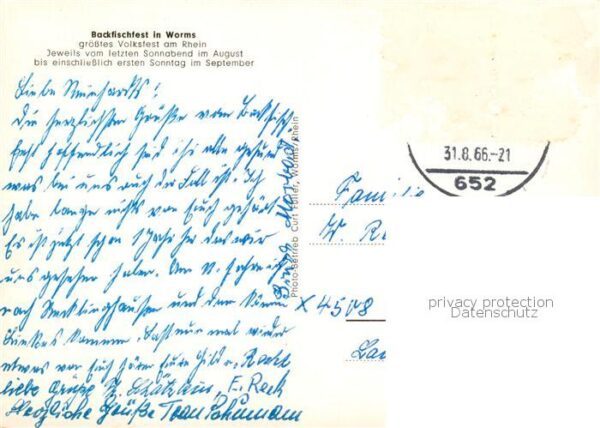 Backfischfest in Worms
größtes Volksfest am Rhein
Jeweils vom letzten Sonnabend im August
bis einschließlich ersten Sonntag im September
Liebe Reinhardts!
Die herzlichsten Grüße vom Backfisch
fest hoffentlich seid ihr alle gesund
was bei uns auch der Fall ist. Ich
habe lange nichts von Euch gehört
Es ist jetzt schon 1 Jahr her das wir
uns gesehen haben. Am 11. fahre ich
nach Recklinghausen und dann
kommen. Laßt nun mal wieder
etwas von Euch hören Eure Hilde
liebe Grüße
Herzliche Grüße
Photo-Betrieb Curt Füller, Worms/Rhein
31.8.66.-21
652
Familie
W. Re
X 4508
privacy protection
Datenschutz